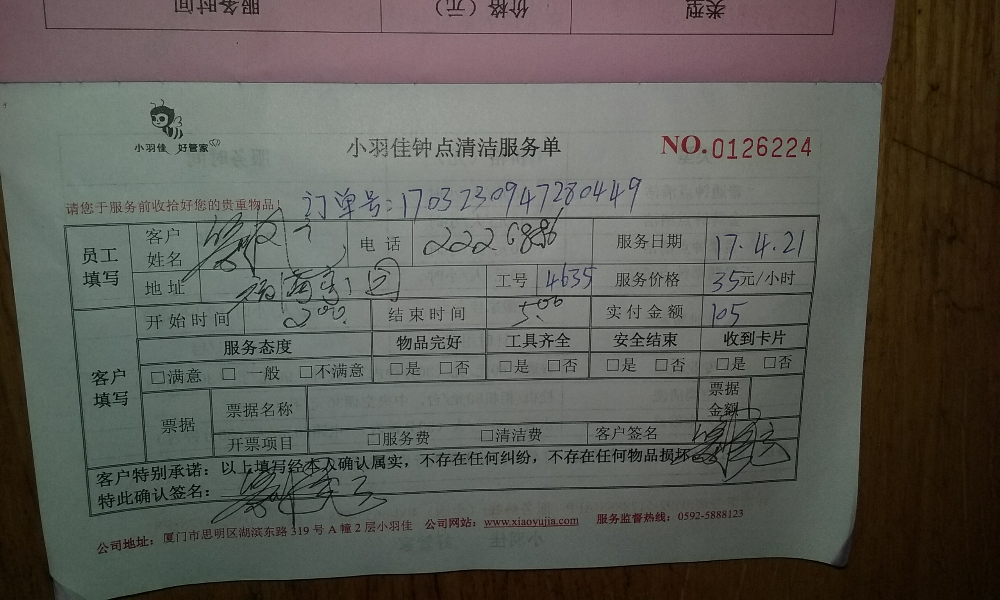 服务时间 价格（元） 类型
小羽佳 好管家
小羽佳钟点清洁服务单
NO.0126224
请您于服务前收拾好您的贵重物品！
订单号:1703230947280449
员工填写 客户姓名 电话 2226886 服务日期 17.4.21
地址 工号 4635 服务价格 35元/小时
开始时间 2:00 结束时间 5:00 实付金额 105
客户填写 服务态度 物品完好 工具齐全 安全结束 收到卡片
□满意 □一般 □不满意 □是 □否 □是 □否 □是 □否 □是 □否
票据 票据名称 票据金额
开票项目 □服务费 □清洁费 客户签名
客户特别承诺：以上填写经本人确认属实，不存在任何纠纷，不存在任何物品损坏。
特此确认签名：
公司地址：厦门市思明区湖滨东路 319 号 A 幢 2 层小羽佳 公司网站：www.xiaoyujia.com 服务监督热线：0592-5888123